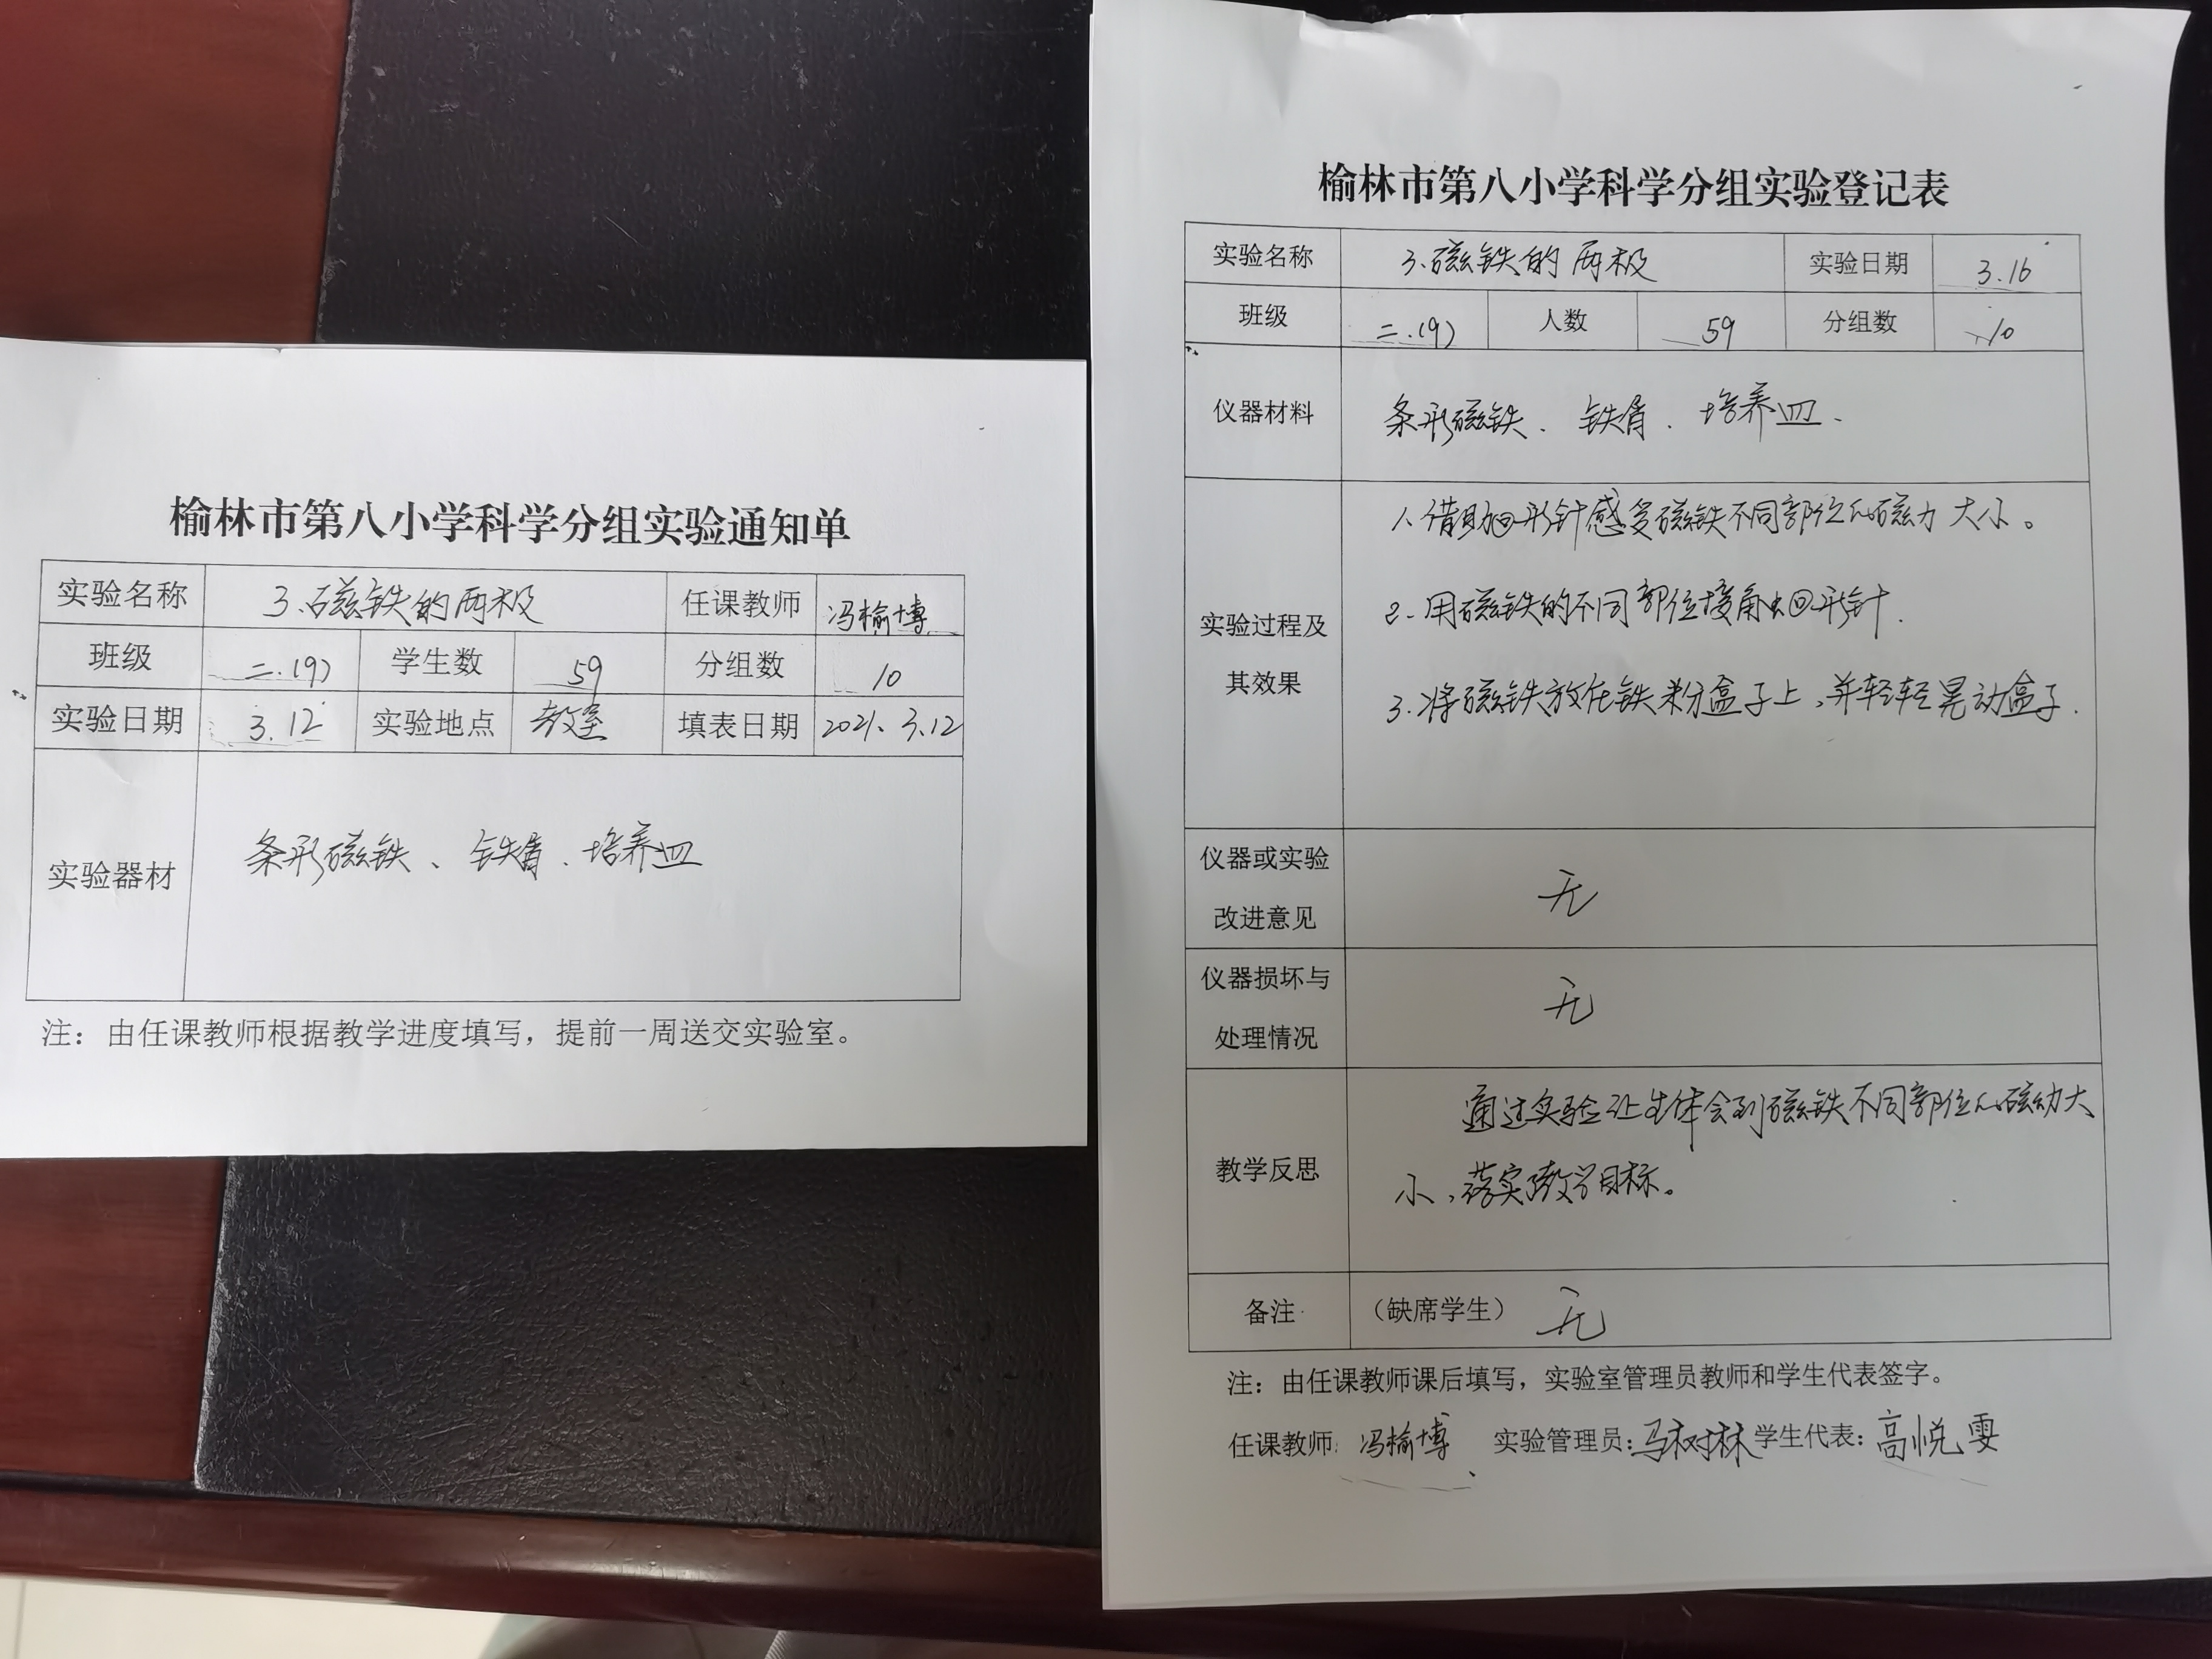 榆林市第八小学科学分组实验通知单
实验名称 3.磁铁的两极 任课教师 冯榆博
班级 二.(9) 学生数 59 分组数 10
实验日期 3.12 实验地点 教室 填表日期 2021.3.12
实验器材 条形磁铁、铁屑、培养皿
注：由任课教师根据教学进度填写，提前一周送交实验室。
榆林市第八小学科学分组实验登记表
实验名称 3.磁铁的两极 实验日期 3.16
班级 二.(9) 人数 59 分组数 10
仪器材料 条形磁铁、铁屑、培养皿、
实验过程及
其效果
1、借助回形针感受磁铁不同部位的磁力大小。
2、用磁铁的不同部位接触回形针.
3.将磁铁放在铁粉盒子上,并轻轻晃动盒子.
仪器或实验
改进意见
无
仪器损坏与
处理情况
无
教学反思
通过实验让生体会到磁铁不同部位的磁力大
小,落实教学目标。
备注 （缺席学生） 无
注：由任课教师课后填写，实验室管理员教师和学生代表签字。
任课教师：冯榆博 实验管理员：马树林 学生代表：高悦雯